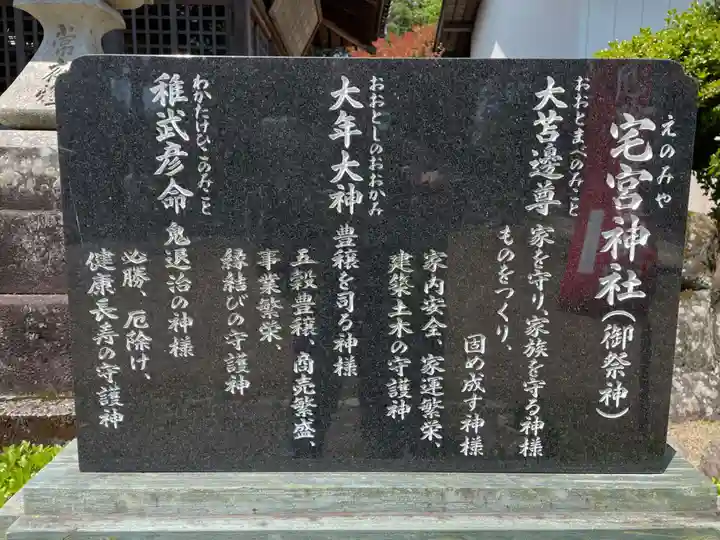 えのみや
宅宮神社(御祭神)
おおとまべのみこと
大苫邊尊 家を守り、家族を守る神様
ものをつくり、
固め成す神様
家内安全、家運繁栄、
建築土木の守護神
おおとしのおおかみ
大年大神 豊穣を司る神様
五穀豊穣、商売繁盛、
事業繁栄、
縁結びの守護神
わかたけひこのみこと
稚武彦命 鬼退治の神様
必勝、厄除け、
健康長寿の守護神
常夜燈